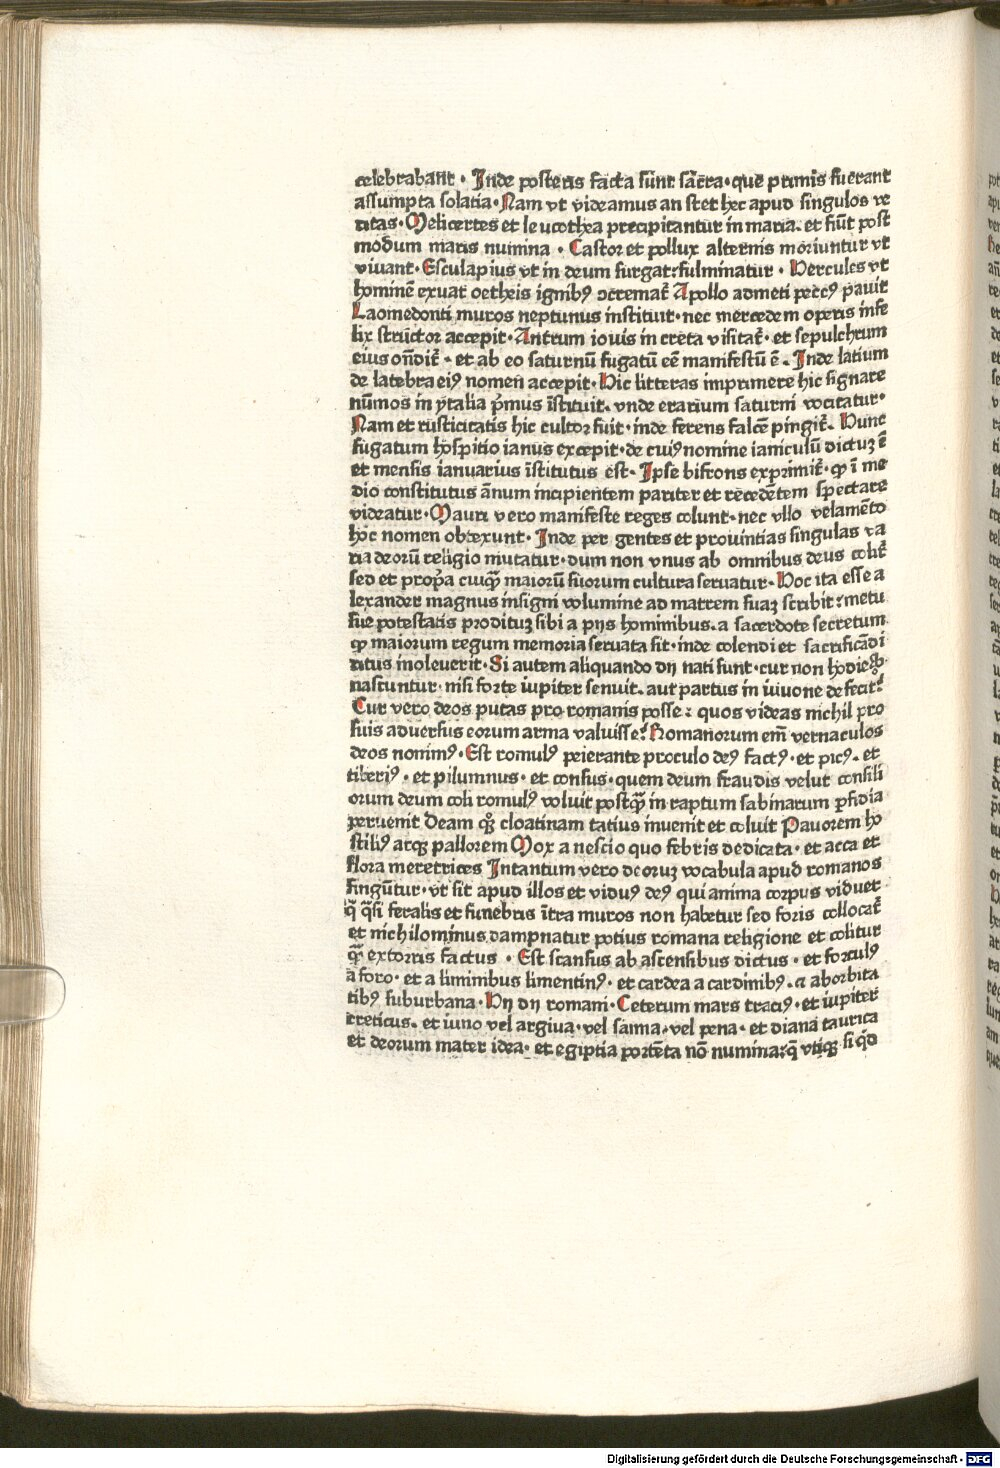 celebrabant · Inde posteris facta sūnt sacra · que primis fuerant
assumpta solatia · Nam vt videamus an stet hec apud singulos ve
ritas · Melicertes et leucothea precipitantur in maria · et fiūt post
modum maris numina · Castor et pollux alternis moriuntur vt
viuant · Esculapius vt in deum surgat : fulminatur · Hercules vt
hominē exuat oetheis ignibꝯ ↄcremat᷑ Apollo admeti peccꝯ pauit
Laomedonti muros neptunus instituit · nec mercedem operis infe
lix structor accepit · Antrum iouis in creta visitat᷑ · et sepulchrum
eius on̄dit᷑ · et ab eo saturnū fugatū eē manifestū ē · Inde latium
de latebra eiꝯ nomen accepit · Hic litteras imprimere hic signare
nūmos in ytalia p̄mus īstituit · vnde erarium saturni vocitatur ·
Nam et rusticitatis hic cultor fuit · inde ferens falcē pingit᷑ · Hunc
fugatum hospitio ianus excepit · de cuiꝯ nomine ianiculū dictuꝫ ē
et mensis ianuarius īstitutus est · Ipse bifrons exprimit᷑ · ꝙ ī me
dio constitutus ānum incipientem pariter et recedētem spectare
videatur · Mauri vero manifeste reges colunt · nec vllo velamēto
hoc nomen obtexunt · Inde per gentes et prouintias singulas va
ria deorū religio mutatur · dum non vnus ab omnibus deus colit᷑
sed et prop̄a cuiqꝫ maiorū suorum cultura seruatur · Hoc ita esse a
lexander magnus insigni volumine ad matrem suaꝫ scribit : metu
sue potestatis prodituꝫ sibi a pijs hominibus · a sacerdote secretum
ꝙ maiorum regum memoria seruata sit · inde colendi et sacrificādi
ritus inoleuerit · Si autem aliquando dij nati sunt · cur non hodieqꝫ
nascuntur · nisi forte iupiter senuit · aut partus in iuuone defecit?
Cur vero deos putas pro romanis posse : quos videas nichil pro
suis aduersus eorum arma valuisse? Romanorum em̄ vernaculos
deos nouimꝯ · Est romulꝯ peierante proculo deꝯ factꝯ · et picꝯ · et
tiberiꝯ · et pilumnus · et consus · quem deum fraudis velut consili
orum deum coli romulꝯ voluit postꝗ̄ in raptum sabinarum ꝑfidia
peruenit Deam qꝫ cloatinam tatius inuenit et coluit Pauorem ho
stiliꝯ atqꝫ pallorem Mox a nescio quo febris dedicata · et acca et
flora meretrices Intantum vero deoruꝫ vocabula apud romanos
fingūtur · vt sit apud illos et viduꝯ deꝯ qui anima corpus viduet
q̄ q̄si feralis et funebris ītra muros non habetur sed foris collocat᷑
et nichilominus dampnatur potius romana religione et colitur
ꝗ̄ extorris factus · Est scansus ab ascensibus dictus · et forculꝯ
a foro · et a liminibus limentinꝯ · et cardea a cardinibꝯ · a aborbita
tibꝯ suburbana · Hij dij romani · Ceterum mars traciꝯ · et iupiter
creticus · et iuno vel argiua · vel samia · vel pena · et diana taurica
et deorum mater idea · et egiptia portēta nō numina : q̄ vtiqꝫ si qd
Digitalisierung gefördert durch die Deutsche Forschungsgemeinschaft - DFG